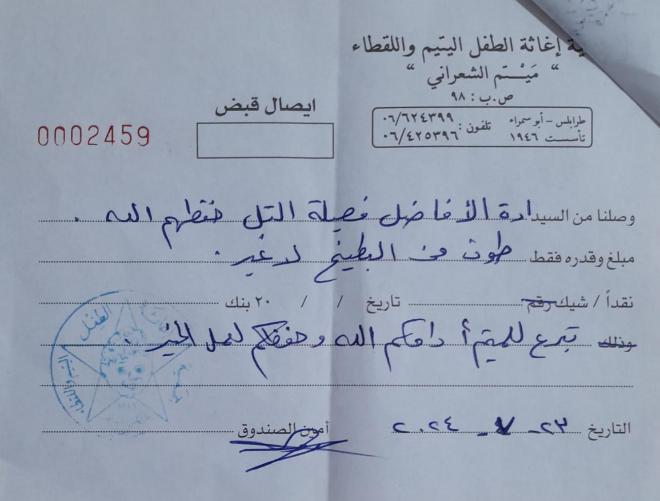 ية إغاثة الطفل اليتيم واللقطاء
" مَيْتم الشعراني "
ص.ب : ٩٨
طرابلس - أبو سمراء
تأسست ١٩٤٦
تلفون : ٠٦/٦٢٤٣٩٩
٠٦/٤٢٥٣٩٦
ايصال قبض
0002459
وصلنا من السيدادة الأفاضل فصيلة التل حفظهم الله .
مبلغ وقدره فقط طون من البطيخ لا غير .
نقداً / شيك رقم تاريخ / / ٢٠ بنك
وذلك تبرع للميتم أدامكم الله وحفظكم لعمل الخير .
الطفل
التاريخ ٢٣ - ٧ - ٢٠٢٤
أمين الصندوق